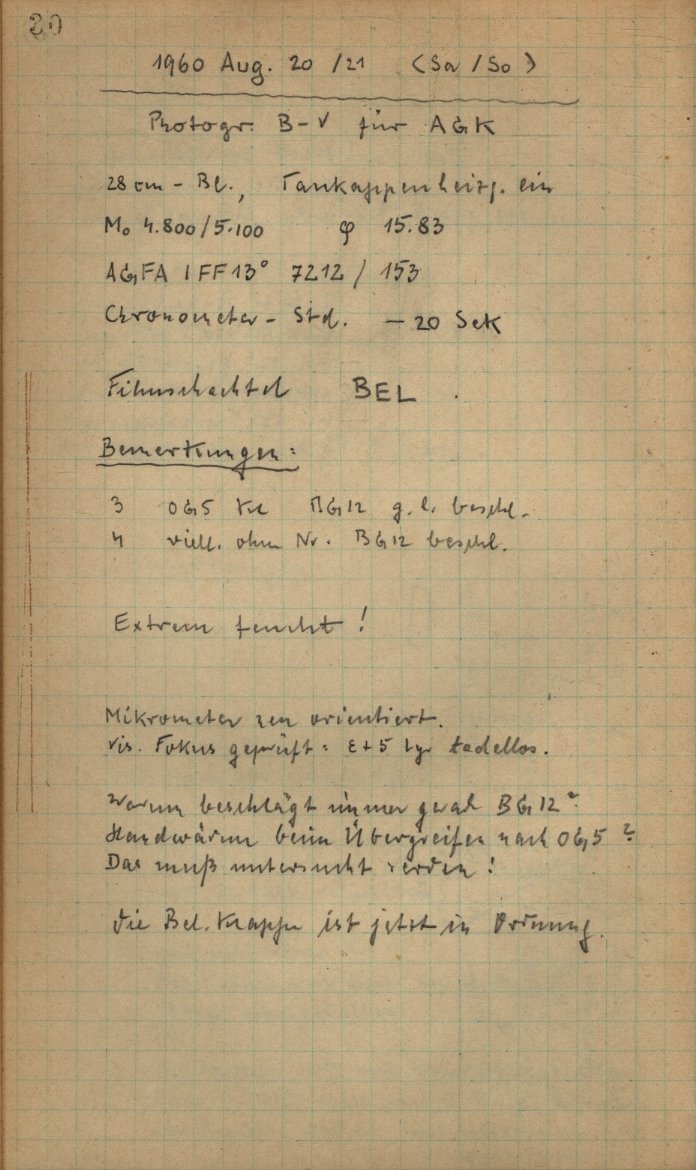 20
1960 Aug. 20 / 21 (Sa / So)
Photogr. B-V für AGK
28 cm - Bl., Taukappenheizg. ein
Mo 4.800/5.100 φ 15.83
AGFA IFF13° 7212 / 153
Chronometer - Std. - 20 Sek
Filmschachtel BEL
Bemerkungen:
3 OG5 BG12 g. l. beschl.
4 viell. ohne Nr. BG12 beschl.
Extrem feucht!
Mikrometer neu orientiert.
Vis. Fokus geprüft: ε+5 Lyr tadellos.
Warum beschlägt immer gerade BG12?
Handwärme beim Übergreifen nach OG5?
Das muß untersucht werden!
Die Bel. Klappe ist jetzt in Ordnung.